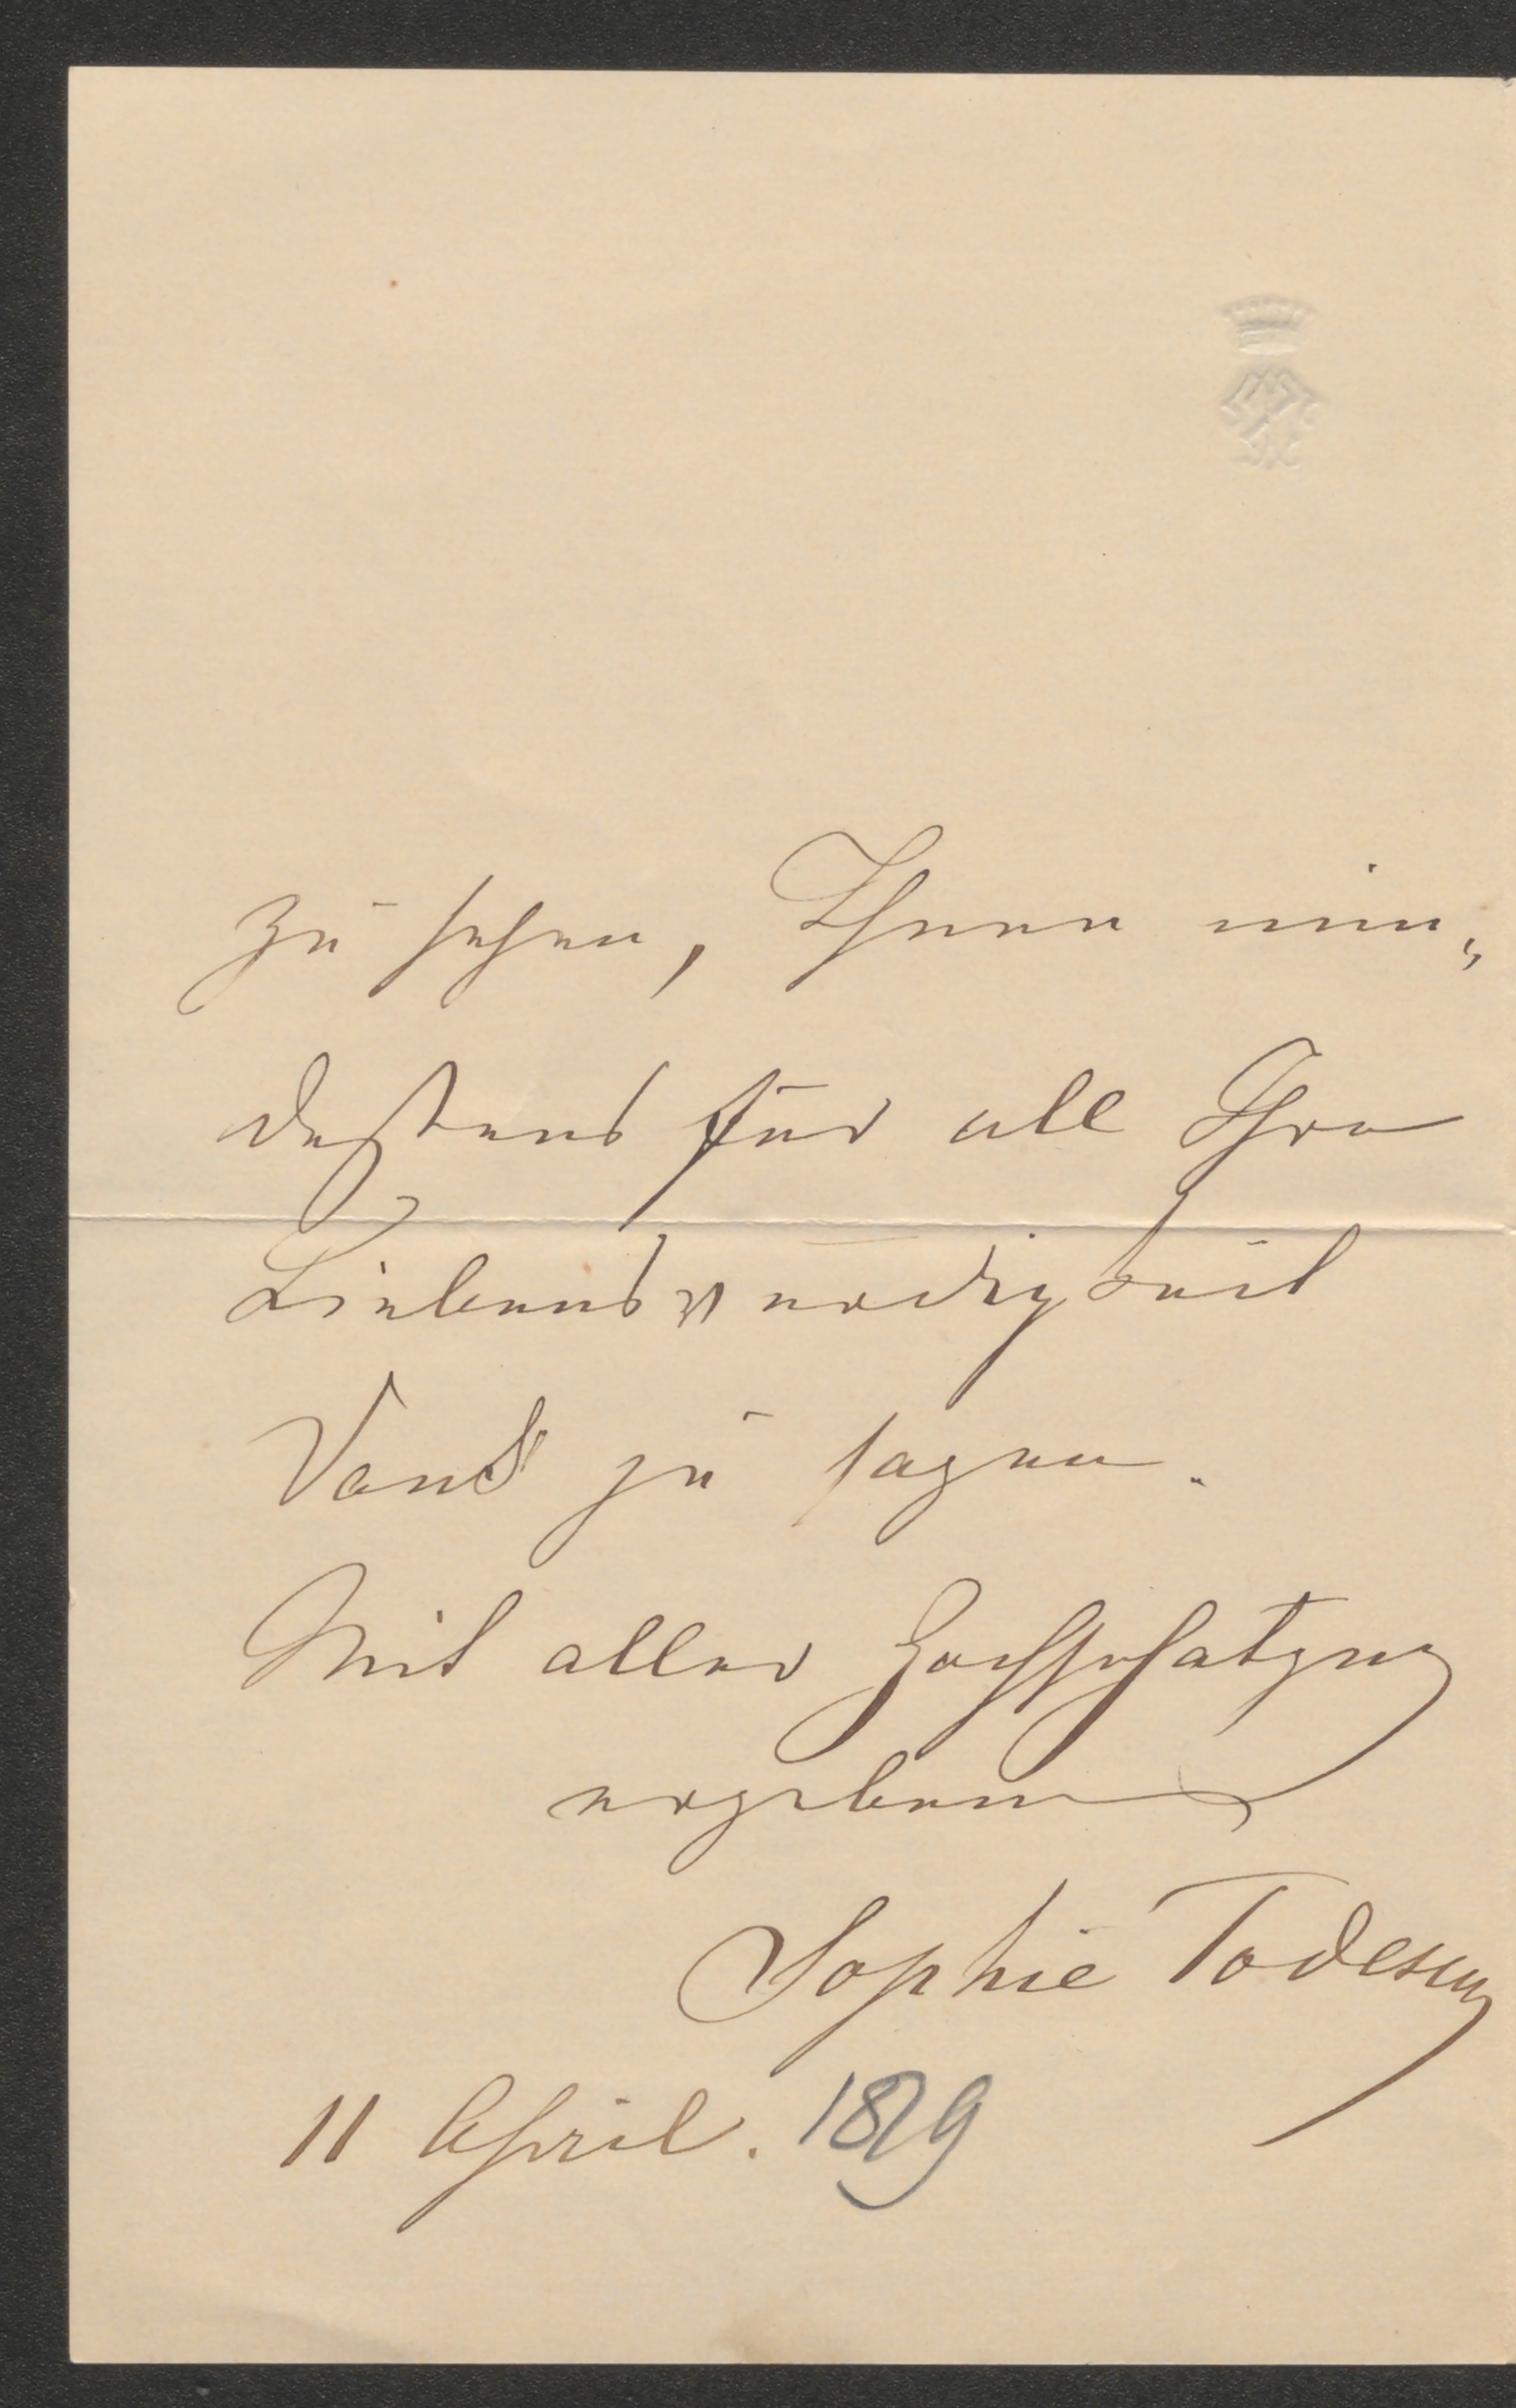 zu sehen, Ihnen min„
destens für all Ihre
Liebenswürdigkeit
Dank zu sagen.
Mit aller Hochschatzung
ergebene
Sophie Todesco
11 April. 1879